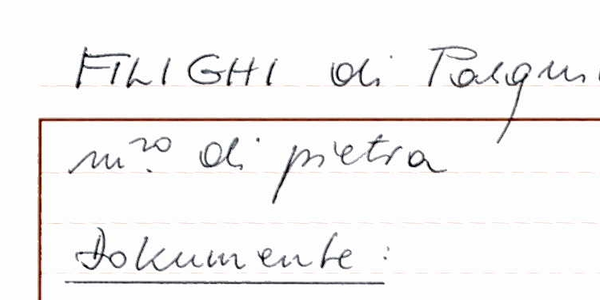 FILIGHI di
m.ro di pietra
Dokumente: